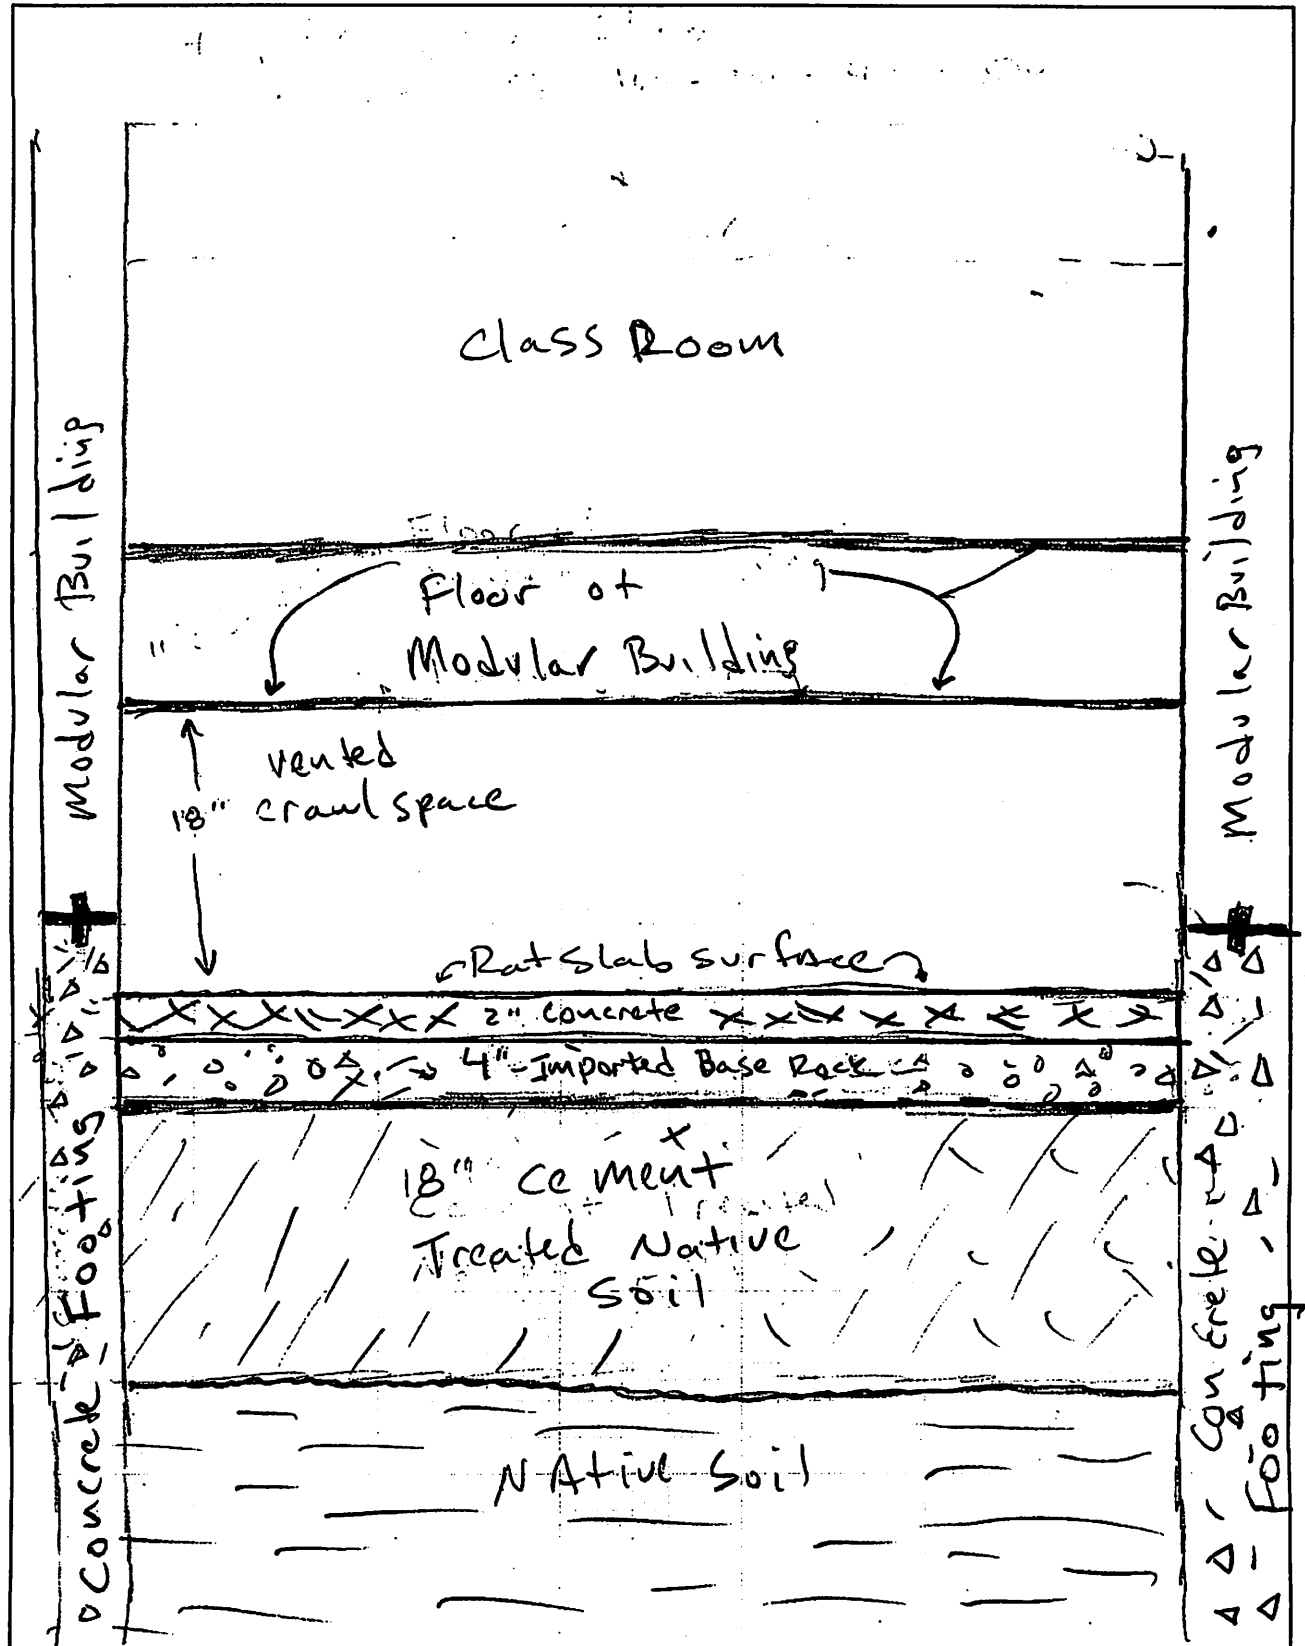 Class Room
Modular Building
Modular Building
Floor
Floor of
Modular Building
vented
18" crawl space
Rat Slab surface
2" concrete
4"-Imported Base Rock
18" Cement
Treated Native
Soil
Concrete Footing
Concrete
Footing
NAtive Soil